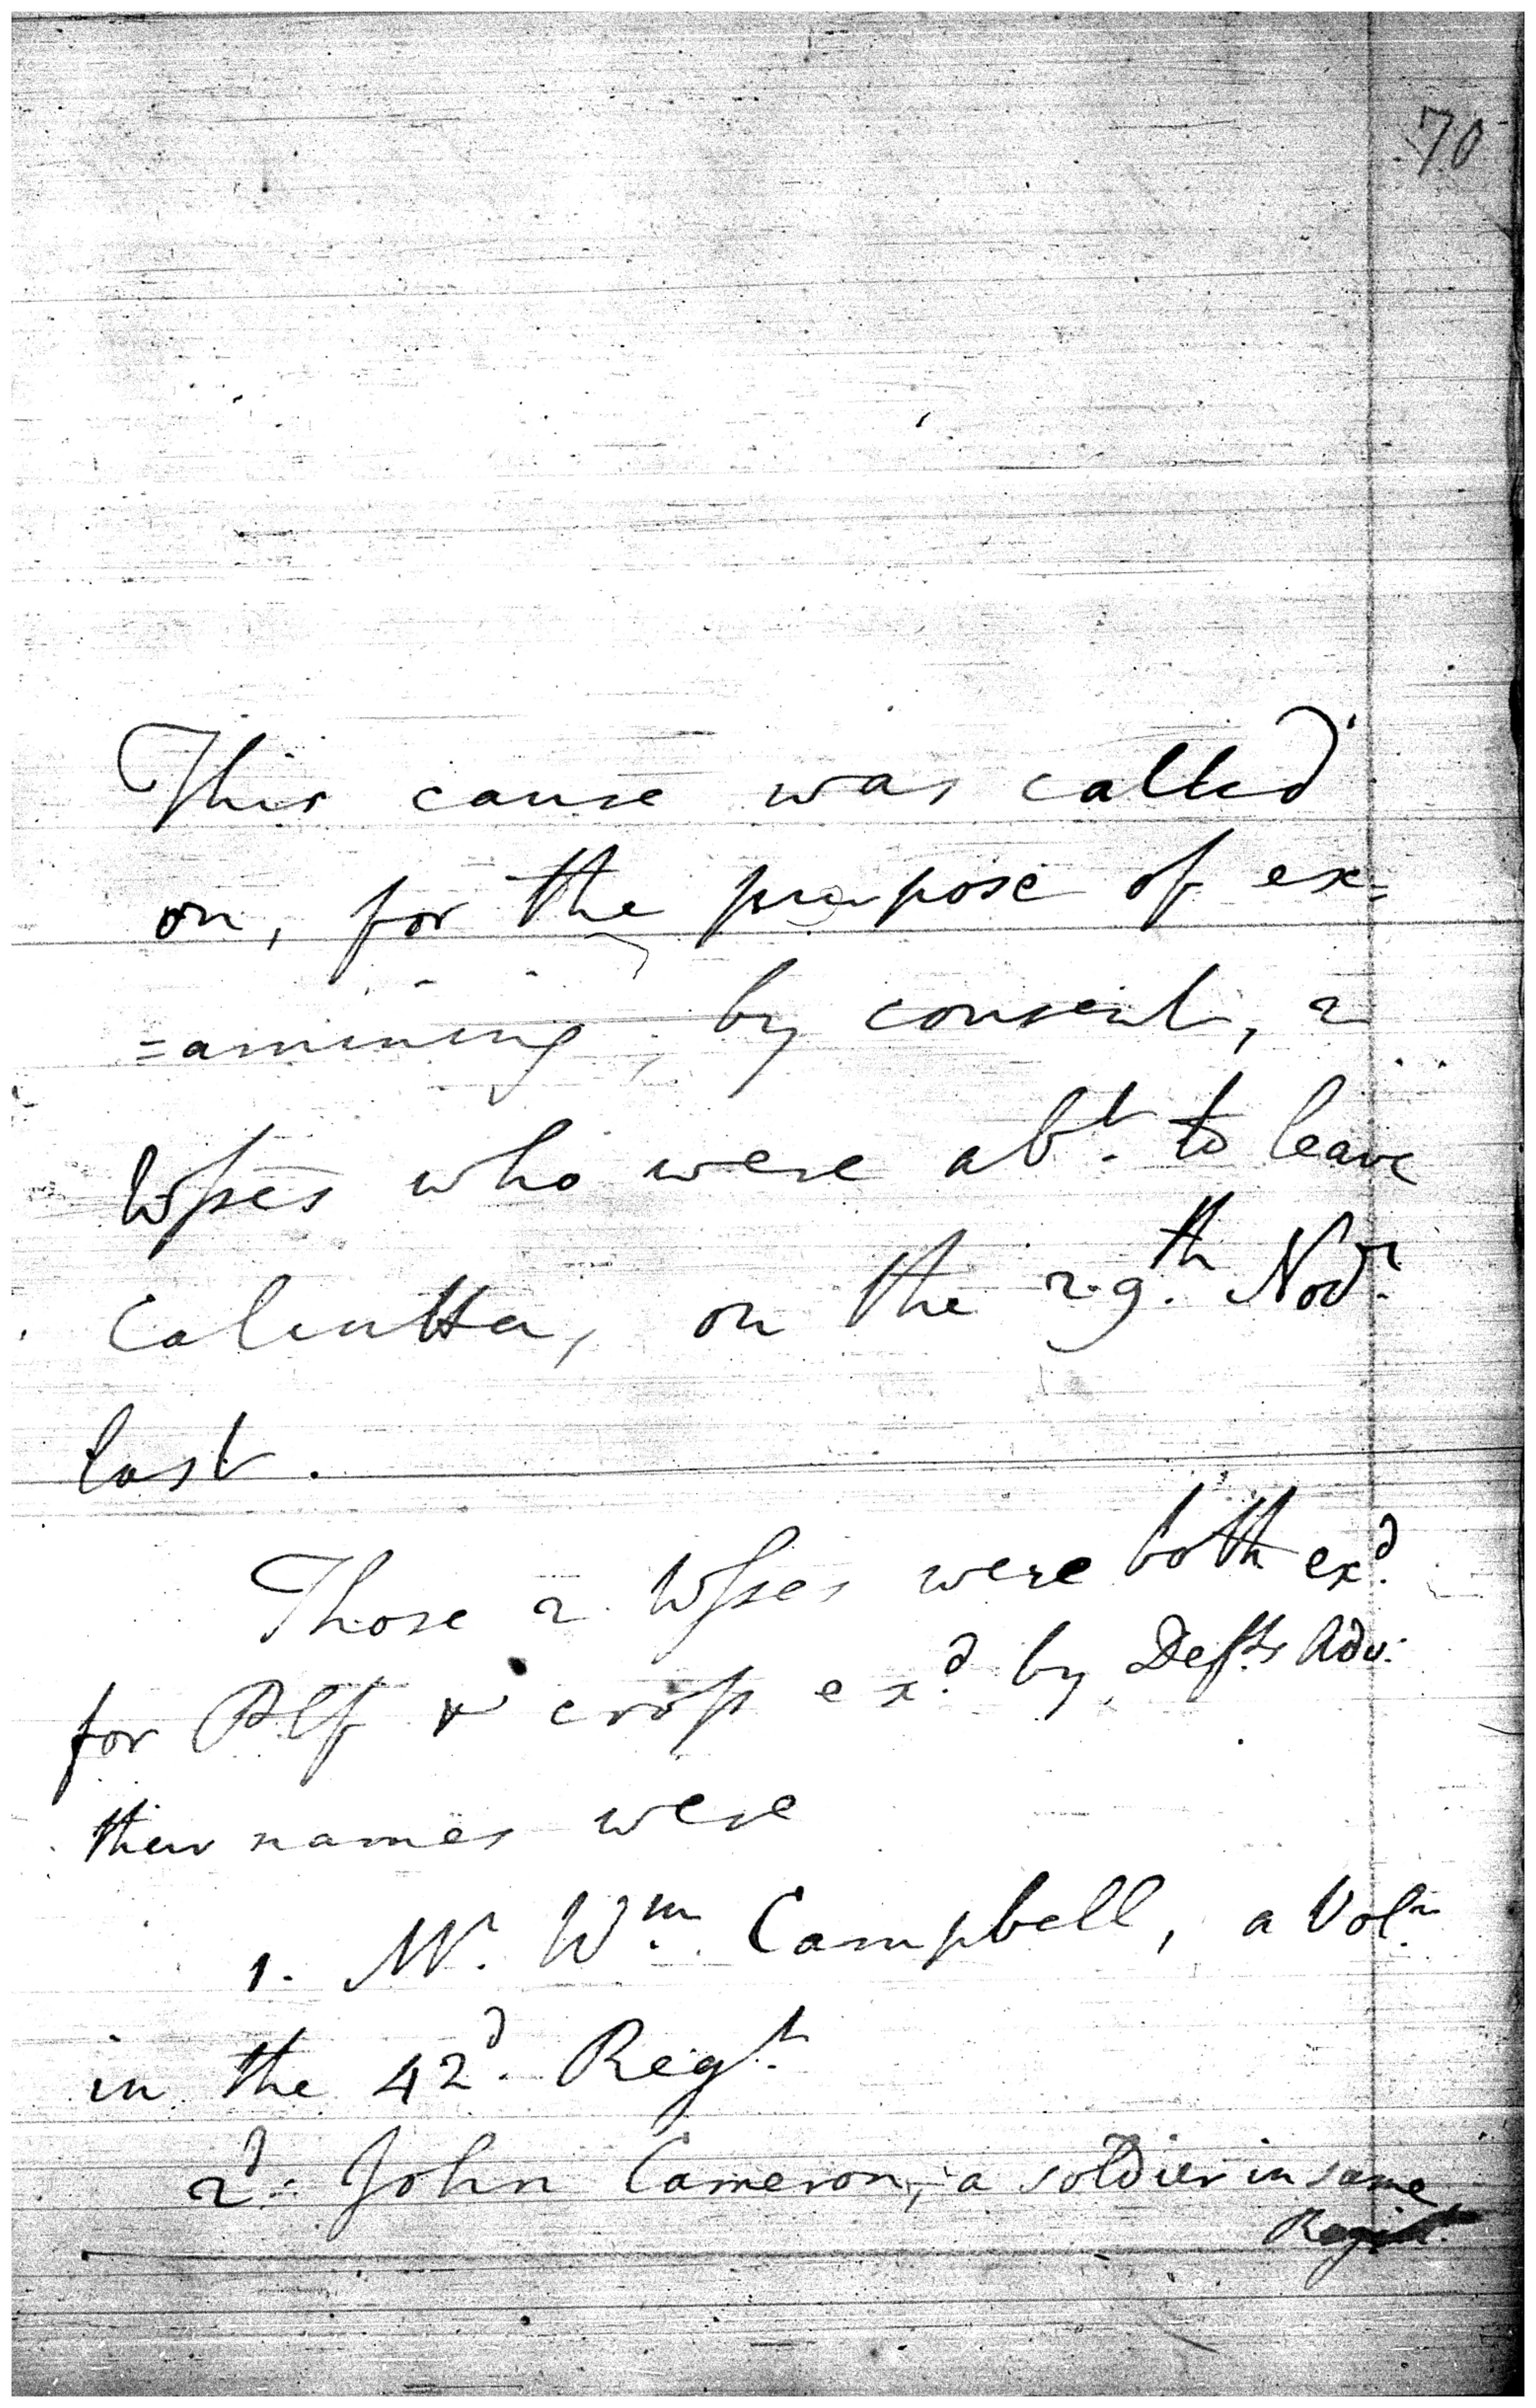 70
This cause was called
on, for the purpose of ex=
=amining, by consent, 2
Wſses who were abt. to leave
Calcutta, on the 29th. Novr.
last.
Those 2 Wſses were both exd.
for Plf & croſs exd. by Defts Adv:
their names were
1. Mr. Wm. Campbell, a Voln.
in the 42d. Regt.
2d. John Cameron, a soldier in same
Regt.